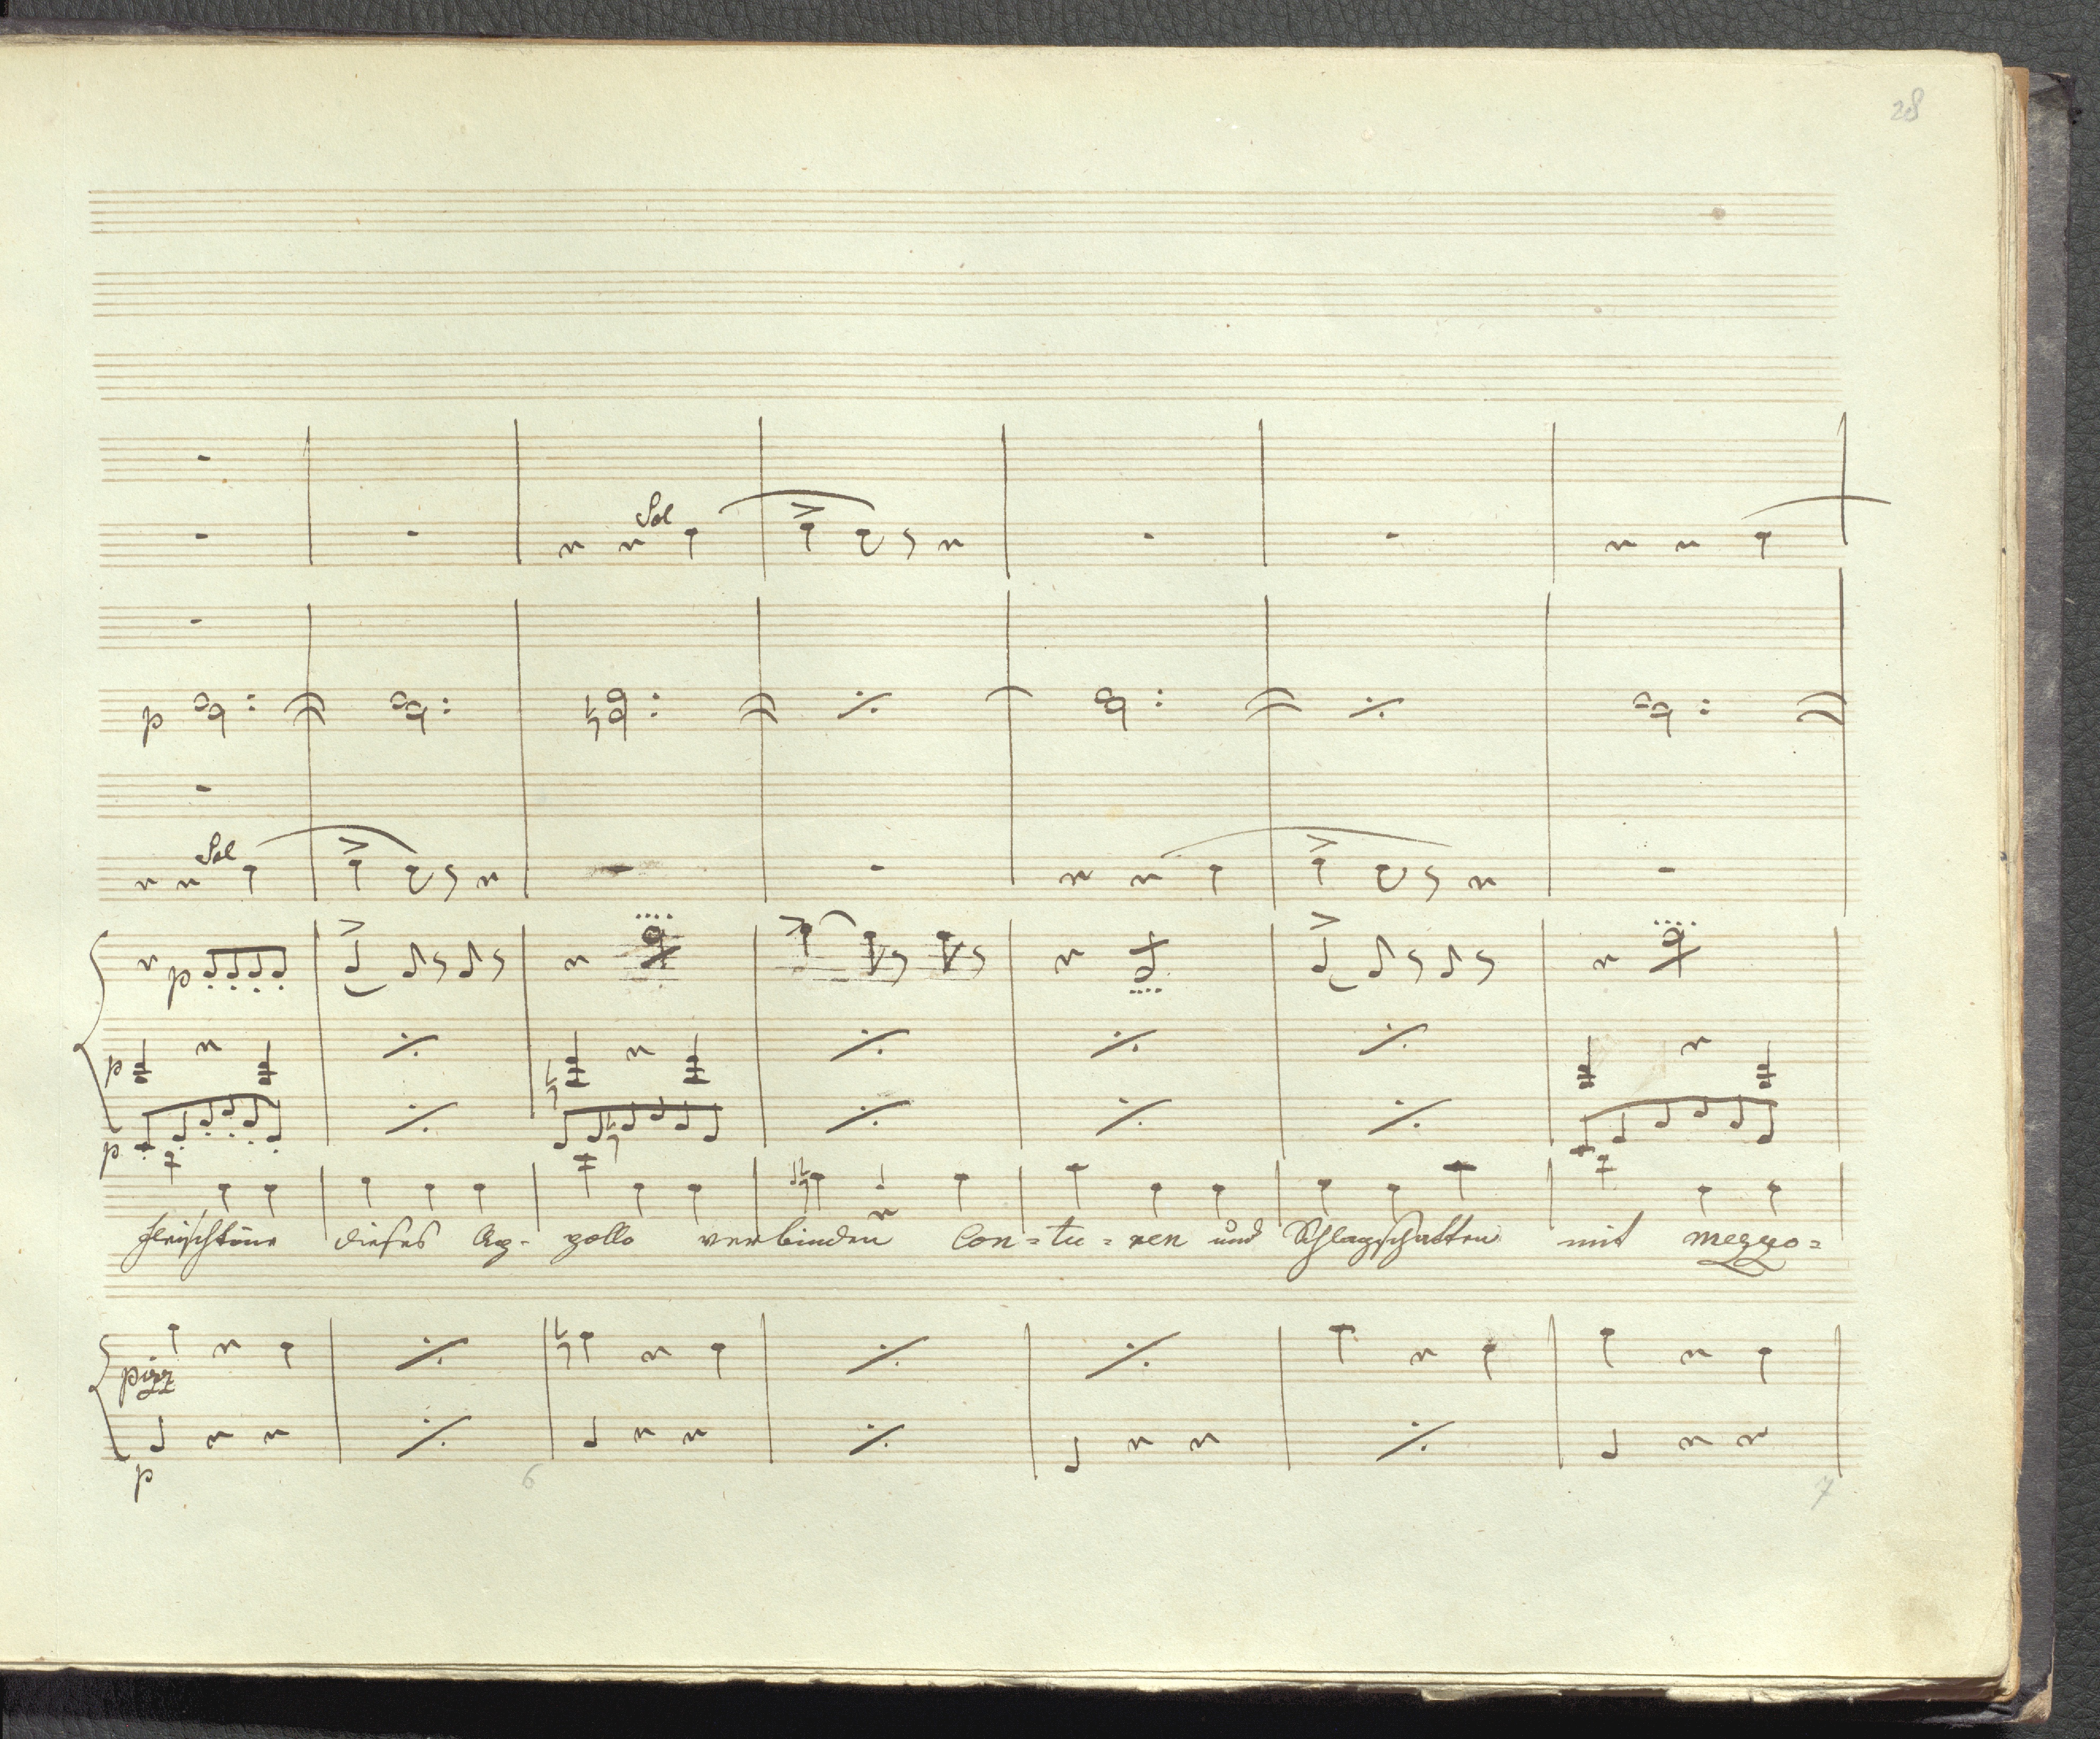 28
Sol
p
Sol
p
p
p
Fleischtöne dieses Ap- pollo verbinden Con=tu=ren und Schlagschatten mit mezzo=
pizz
p
6 7